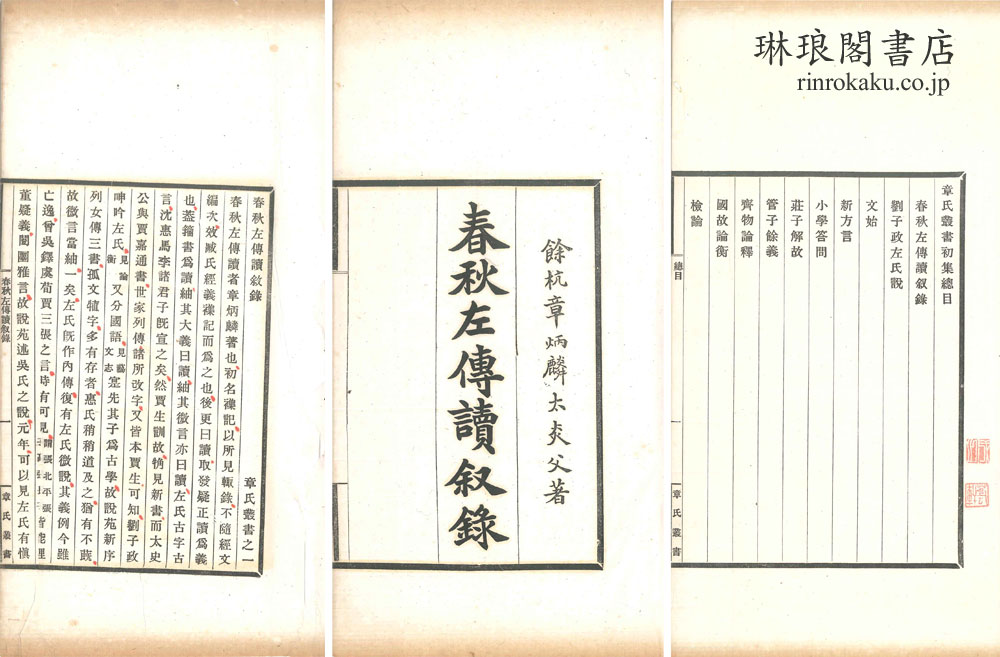 琳琅閣書店
rinrokaku.co.jp
章氏叢書初集總目
春秋左傳讀敘錄
劉子政左氏說
文始
新方言
小學答問
莊子解故
管子餘義
齊物論釋
國故論衡
檢論
總目
章氏叢書
餘杭章炳麟太炎父著
春秋左傳讀叙錄
春秋左傳讀敘錄 章氏叢書之一
春秋左傳讀者章炳麟箸也初名襍記以所見輒錄不隨經文
編次效臧氏經義襍記而爲之也後更曰讀取發疑正讀爲義
也蓋籀書爲讀紬其大義曰讀紬其微言亦曰讀左氏古字古
言沈惠馬李諸君子旣宣之矣然賈生訓故觕見新書而太史
公與賈嘉通書世家列傳諸所改字又皆本賈生可知劉子政
呻吟左氏見論衡又分國語見藝文志寔先其子爲古學故說苑新序
列女傳三書孤文犆字多有存者惠氏稍稍道及之猶有不蔇
故微言當紬一矣左氏旣作內傳復有左氏微說其義例今雖
亡逸曾吳鐸虞荀賈三張之言時有可見謂張北平張
董疑義闓圛雅言故說苑述吳氏之說元年可以見左氏有愼
春秋左傳讀敘錄
章氏叢書